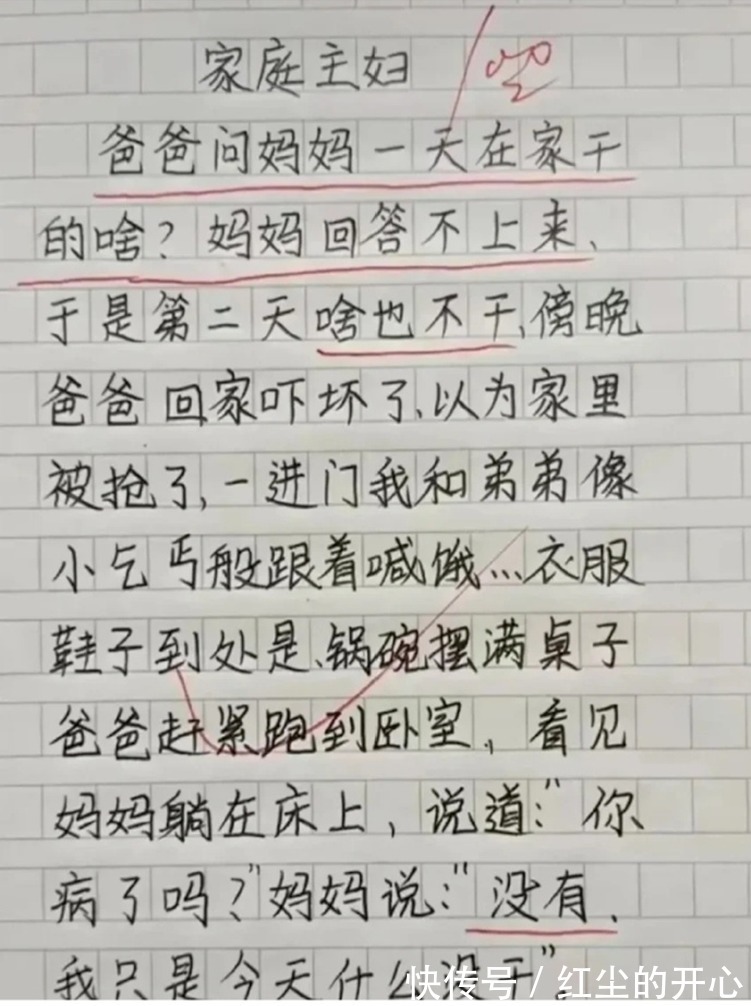 家庭主妇
爸爸问妈妈一天在家干
的啥？妈妈回答不上来、
于是第二天啥也不干、傍晚
爸爸回家吓坏了、以为家里
被抢了，一进门我和弟弟像
小乞丐般跟着喊饿…衣服
鞋子到处是、锅碗摆满桌子
爸爸赶紧跑到卧室，看见
妈妈躺在床上，说道：“你
病了吗？”妈妈说：“没有、
我只是今天什么没干”
快传号/红尘的开心